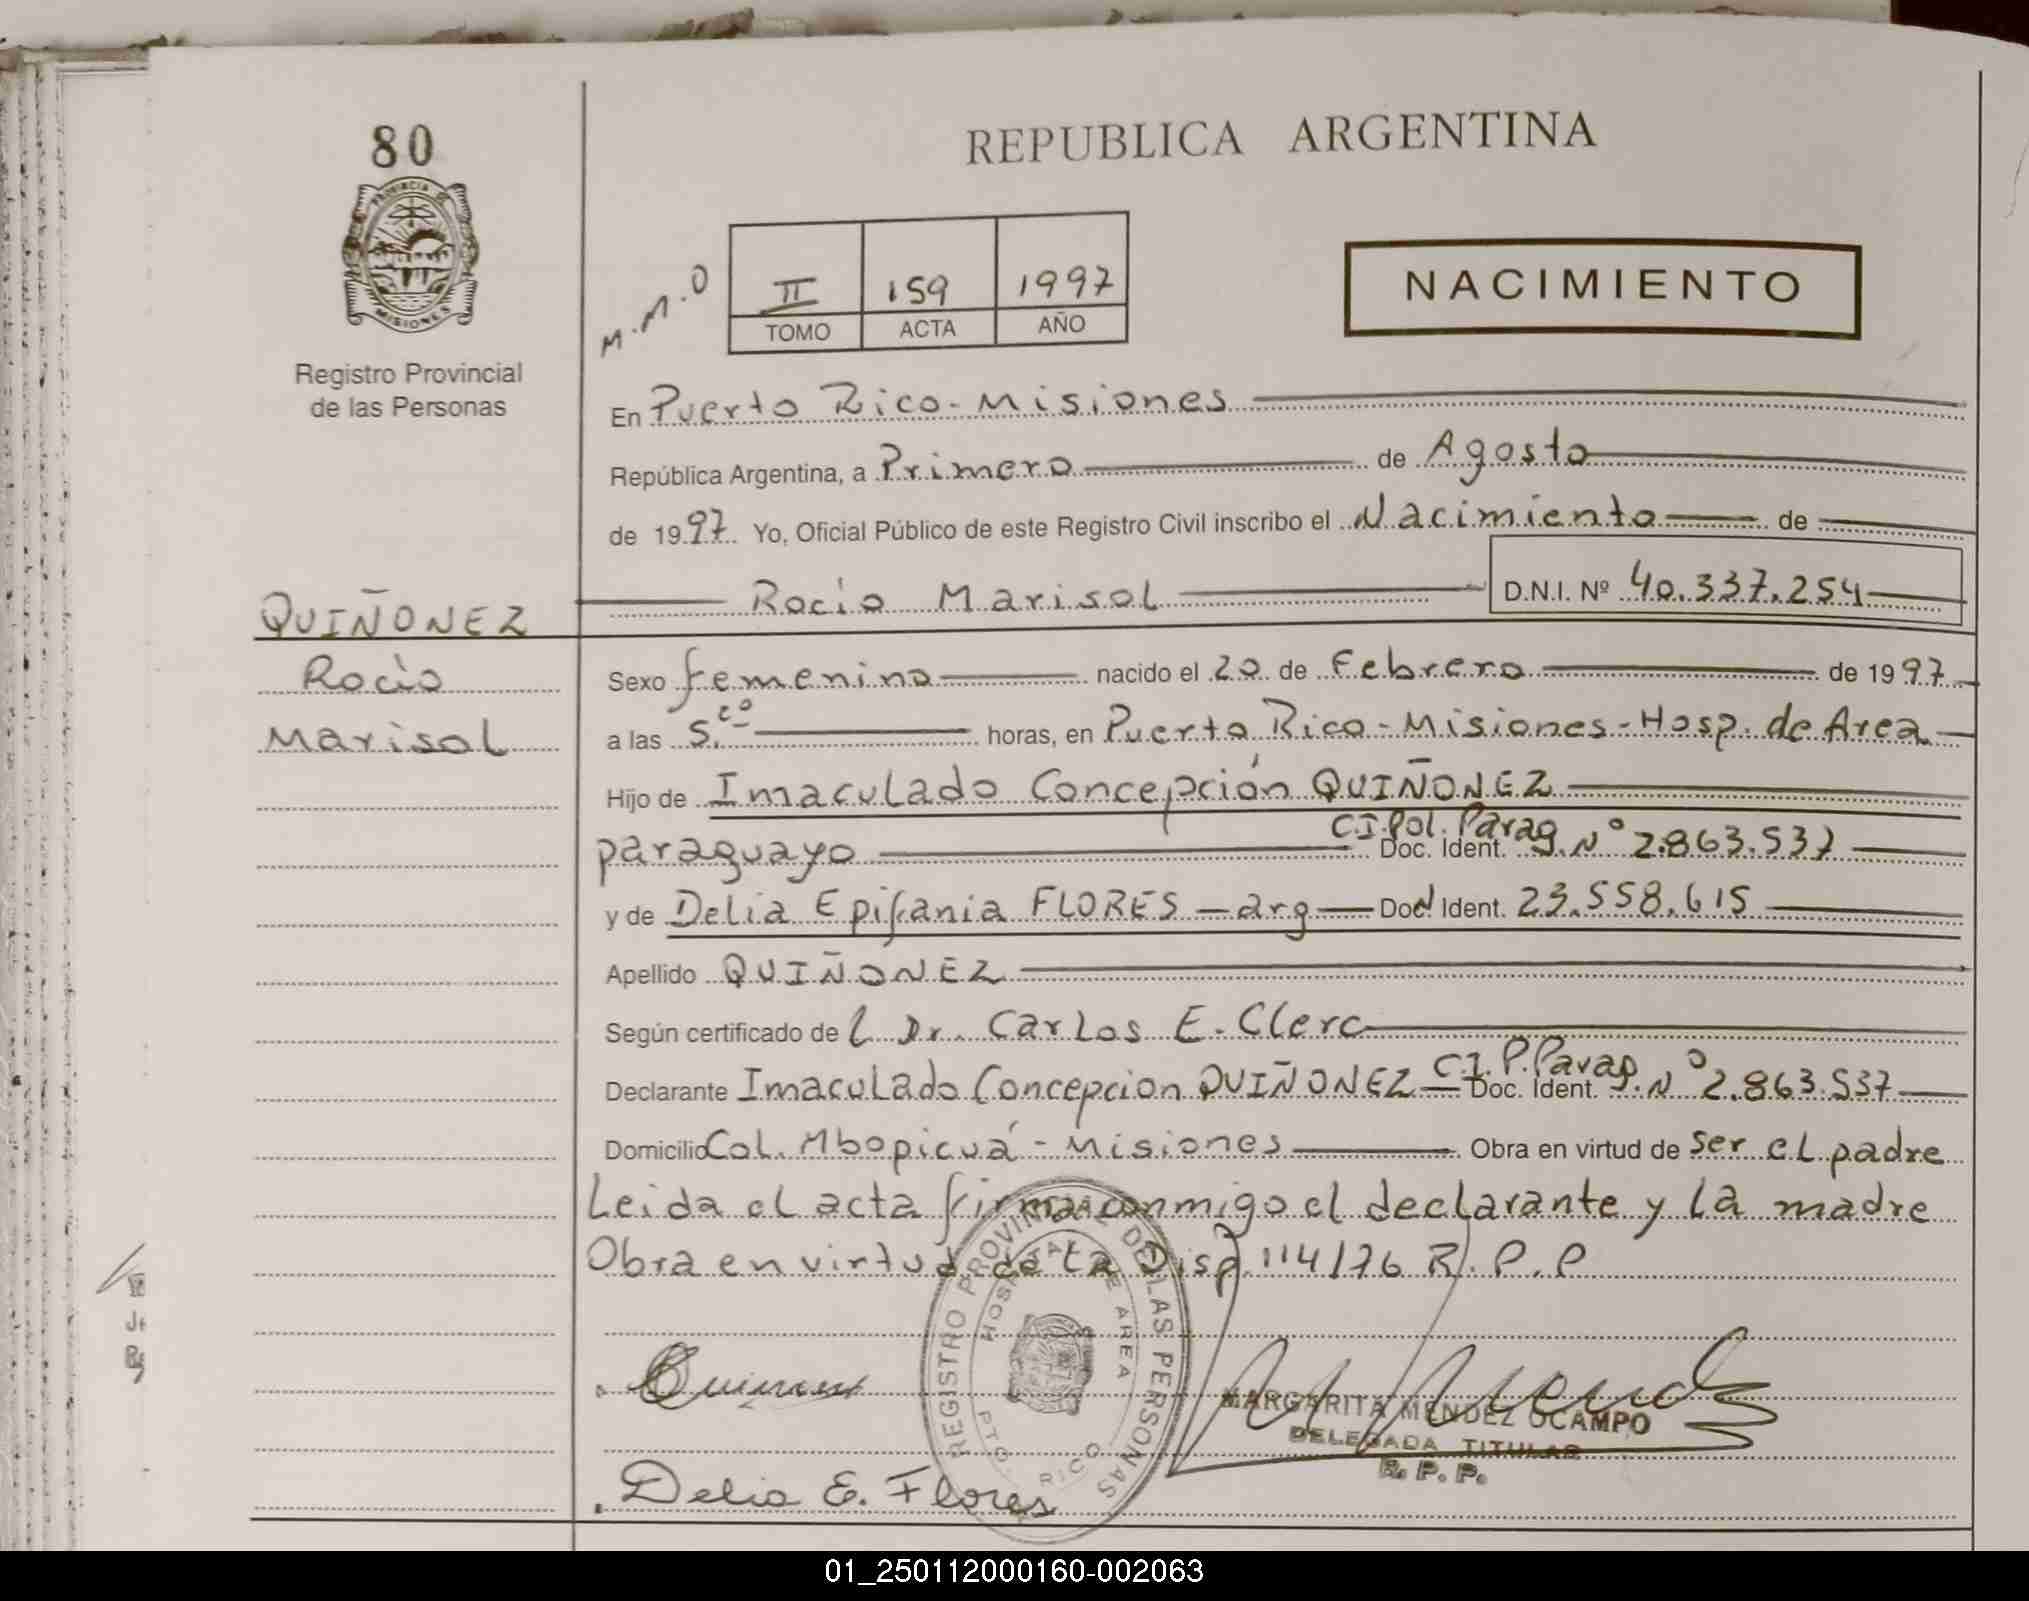 80
PROVINCIA DE
MISIONES
Registro Provincial
de las Personas
REPUBLICA ARGENTINA
M.M.O
II 159 1997
TOMO ACTA AÑO
NACIMIENTO
En Puerto Rico - Misiones
República Argentina, a Primero de Agosto
de 1997 Yo, Oficial Público de este Registro Civil inscribo el Nacimiento de
Rocío Marisol D.N.I. Nº 40.337.254
QUIÑONEZ
Rocío
Marisol
Sexo femenino nacido el 20 de Febrero de 1997
a las 5.co horas, en Puerto Rico - Misiones - Hosp. de Area
Hijo de Imaculado Concepción QUIÑONEZ
paraguayo C.I. Pol. Parag. Doc. Ident. Nº 2.863.537
y de Delia Epifania FLORES - arg - Doc. Ident. 23.558.615
Apellido QUIÑONEZ
Según certificado de l Dr. Carlos E. Clerc
Declarante Imaculado Concepcion QUIÑONEZ C.I. P. Parag. Doc. Ident. Nº 2.863.537
Domicilio Col. Mbopicuá - Misiones Obra en virtud de ser el padre
Leida el acta firma conmigo el declarante y la madre
Obra en virtud de la Disp. 114/76 R.P.P
REGISTRO PROVINCIAL DE LAS PERSONAS
HOSPITAL DE AREA
PTO. RICO
MARGARITA MENDEZ OCAMPO
DELEGADA TITULAR
R. P. P.
Delia E. Flores
01_250112000160-002063